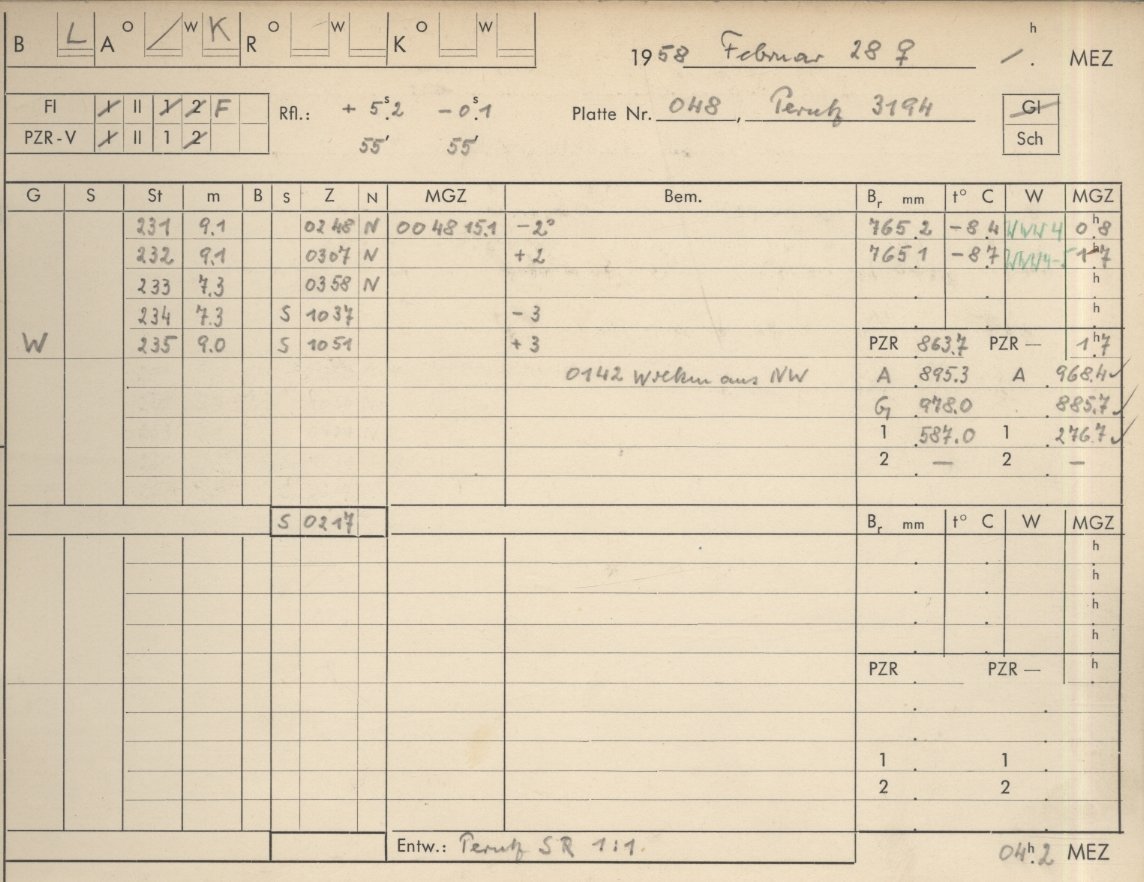 B L A O / W K R O W K O W
1958 Februar 28 ♀ h . MEZ
FI I II 1 2 F
PZR-V I II 1 2
Rfl.: + 5ˢ.2 - 0ˢ.1
55' 55'
Platte Nr. 048, Perutz 3194
Gl
Sch
G S St m B S Z N MGZ Bem. Bᵣ mm t° C W MGZ
231 9.1 02 48 N 00 48 15.1 -2° 765.2 -8.4 WNW 4 0ʰ.8
232 9.1 03 07 N +2 765.1 -8.7 1ʰ.7
233 7.3 03 58 N h
234 7.3 S 10 37 - 3 h
W 235 9.0 S 10 51 + 3 PZR 863.7 PZR — 1ʰ.7
0142 Wolken aus NW A 895.3 A 968.4 ✓
G 978.0 885.7 ✓
1 587.0 1 276.7 ✓
2 — 2 —
S 02 17 Bᵣ mm t° C W MGZ
h
h
h
h
PZR PZR — h
1 1
2 2
Entw.: Perutz SR 1:1. 04ʰ.2 MEZ